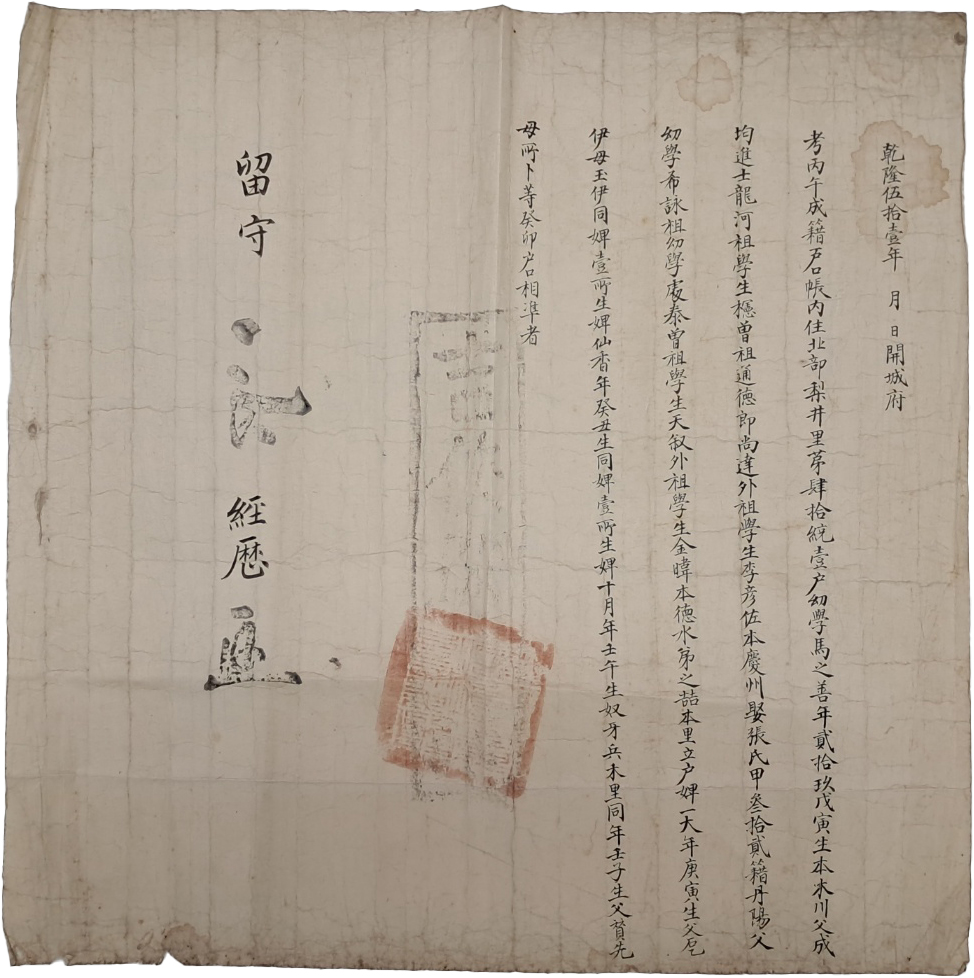 乾隆伍拾壹年 月 日開城府
考丙午成籍戶口帳內住北部梨井里第肆拾統壹戶幼學馬之善年貳拾玖戊寅生本木川父成
均進士龍河祖學生櫶曾祖通德郎尚達外祖學生李彦佐本慶州娶張氏甲叁拾貳籍丹陽父
幼學希詠祖幼學處泰曾祖學生天叙外祖學生金暐本德水弟之喆本里立戶婢一大年庚寅生父
伊母玉伊同婢壹所生婢仙香年癸丑生同婢壹所生婢十月年壬午生奴牙兵本里同年壬子生父贊先
母所卜等癸卯戶口相準者
留守
經歷